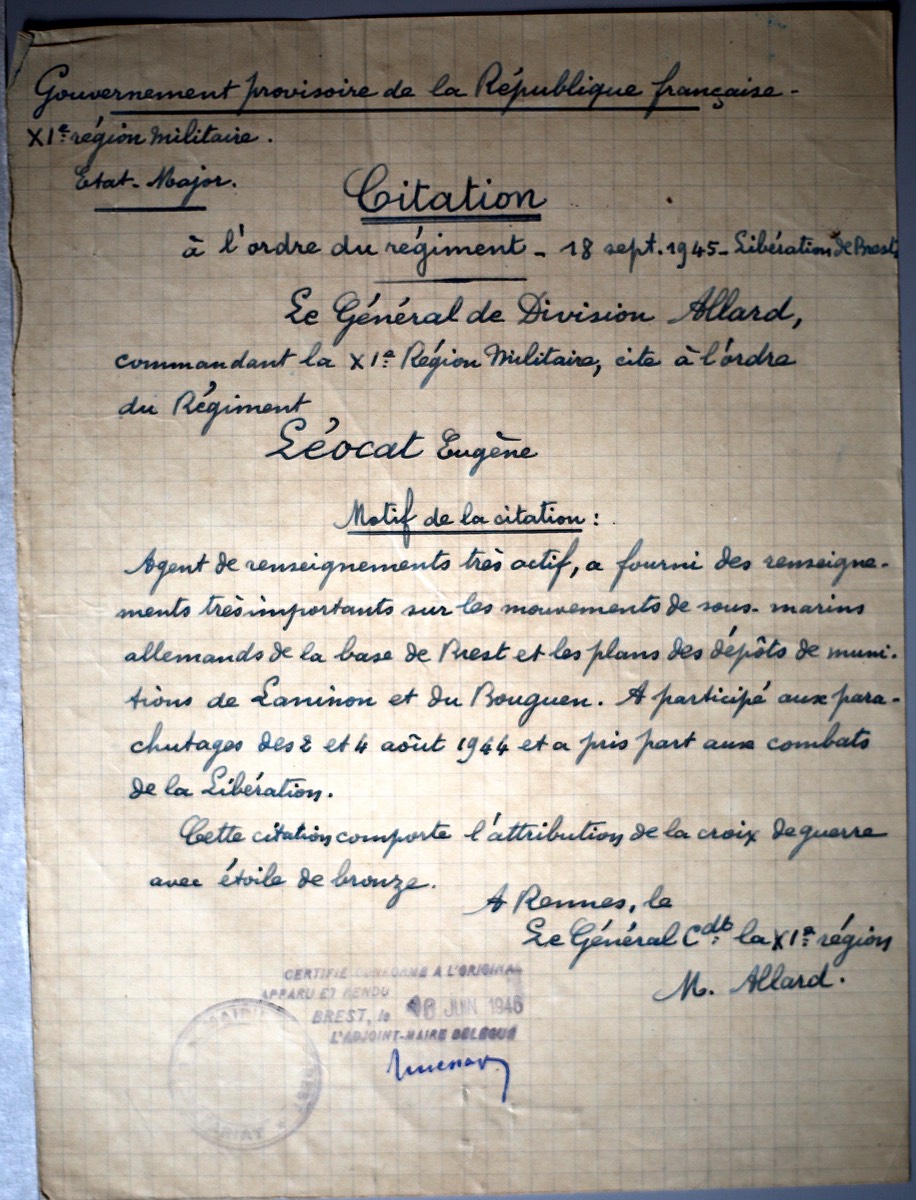 Gouvernement provisoire de la République française -
XIe région Militaire.
Etat-Major.
Citation
à l'ordre du régiment - 18 sept. 1945 - Libération de Brest
Le Général de Division Allard,
commandant la XIe Région Militaire, cite à l'ordre
du Régiment
Léocat Eugène
Motif de la citation :
Agent de renseignements très actif, a fourni des renseigne-
ments très importants sur les mouvements de sous-marins
allemands de la base de Brest et les plans des dépôts de muni-
tions de Laninon et du Bouguen. A participé aux para-
chutages des 2 et 4 août 1944 et a pris part aux combats
de la Libération.
Cette citation comporte l'attribution de la croix de guerre
avec étoile de bronze.
A Rennes, le
Le Général Cdt la XIe région
M. Allard.
CERTIFIE CONFORME A L'ORIGINAL
APPARU ET RENDU
BREST, le JUIN 1946
L'ADJOINT-MAIRE DELEGUE
MAIRIE BREST